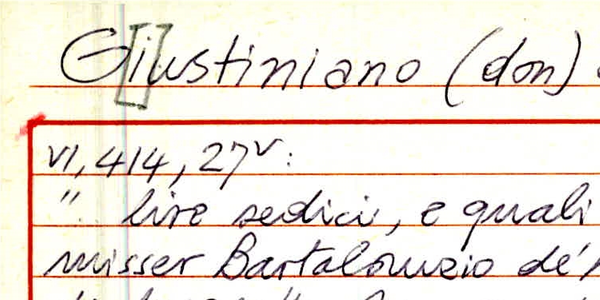 G[i]ustiniano (don)
VI, 414, 27v:
".. lire sedici, e quali
misser Bartalomeio de'